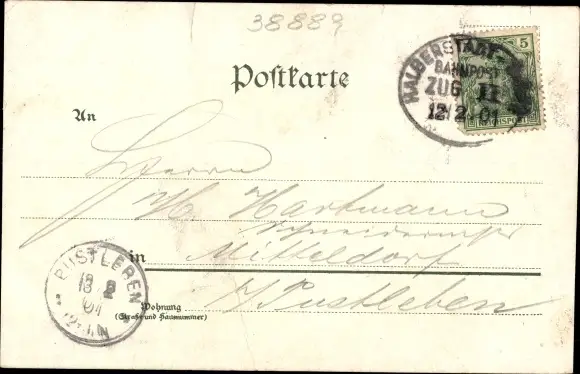 38889
HALBERSTADT
BAHNPOST
ZUG II
12.2.01
5
REICHSPOST
Postkarte
An
Herrn
H. Hartmann
Schneidermstr
in Mitteldorf
b/Pustleben
PUSTLEBEN
13 2
01
Wohnung
(Straße und Hausnummer)